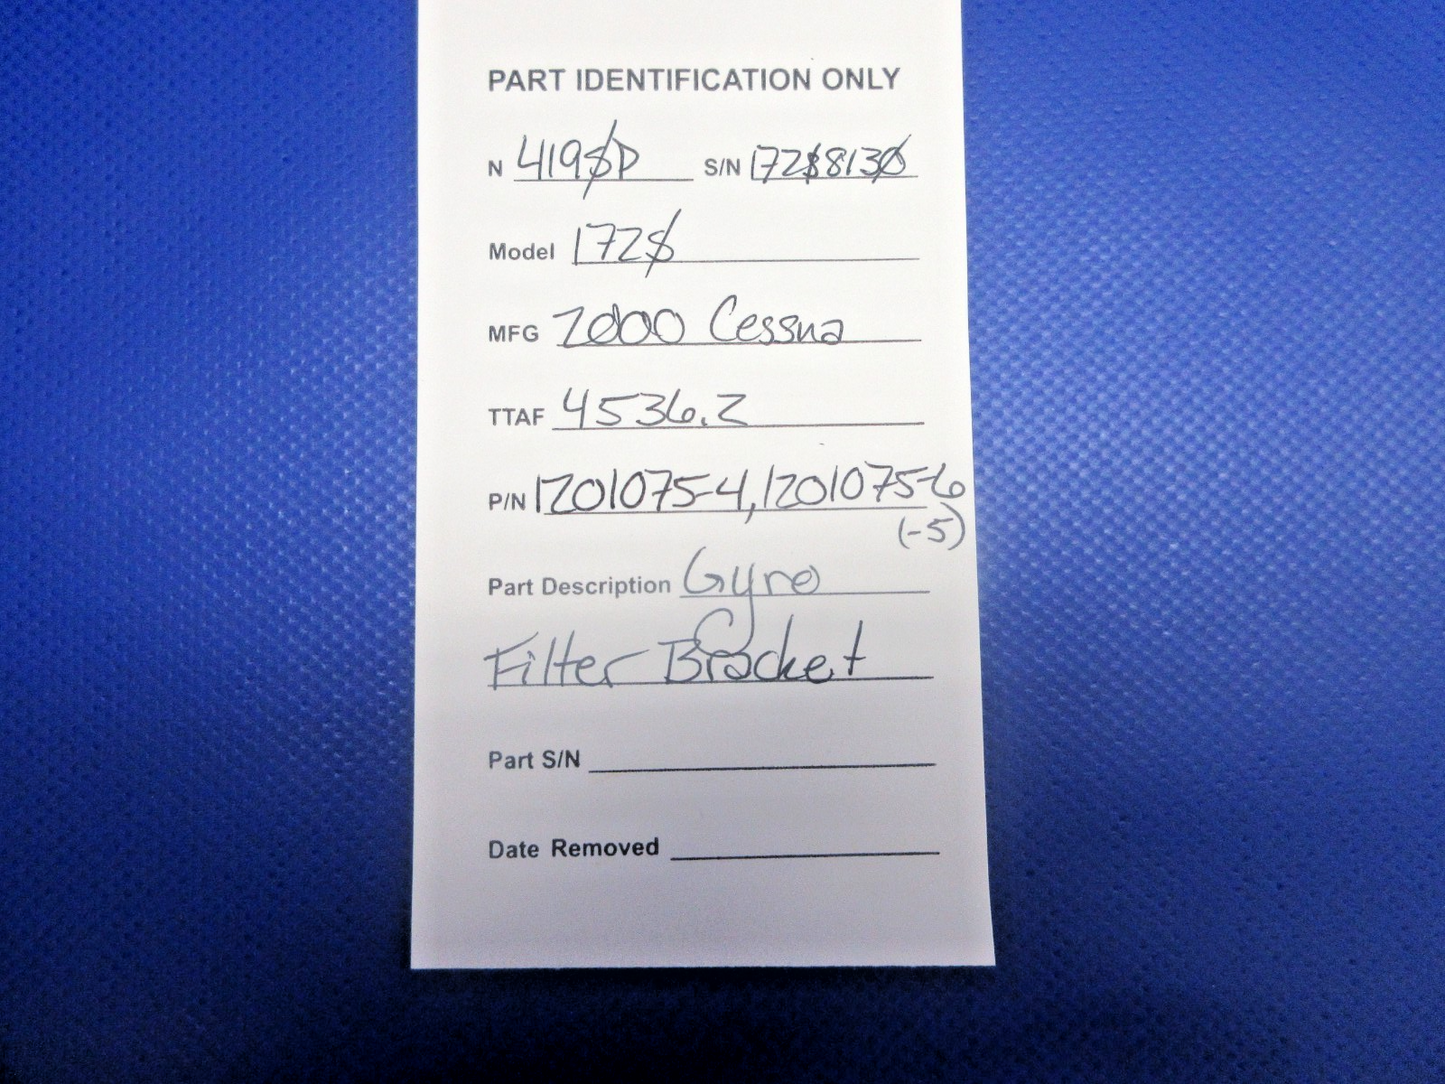 PART IDENTIFICATION ONLY
N 419SP S/N 172S8130
Model 172S
MFG 2000 Cessna
TTAF 4536.2
P/N 1201075-4, 1201075-6
(-5)
Part Description Gyro
Filter Bracket
Part S/N
Date Removed